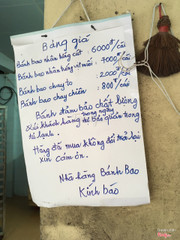 Bảng giá
Bánh bao nhân trứng cút: 6000đ/cái
Bánh bao nhân trứng vịt muối: 4000đ/cái
Bánh bao chay to 2000đ/cái
Bánh bao chay chiên: 800đ/cái
Bánh đảm bảo chất lượng
khách hàng để bảo quản trong
tủ lạnh.
Hàng đã mua không đổi trả lại
xin cảm ơn.
Nhà hàng Bánh Bao
Kính báo